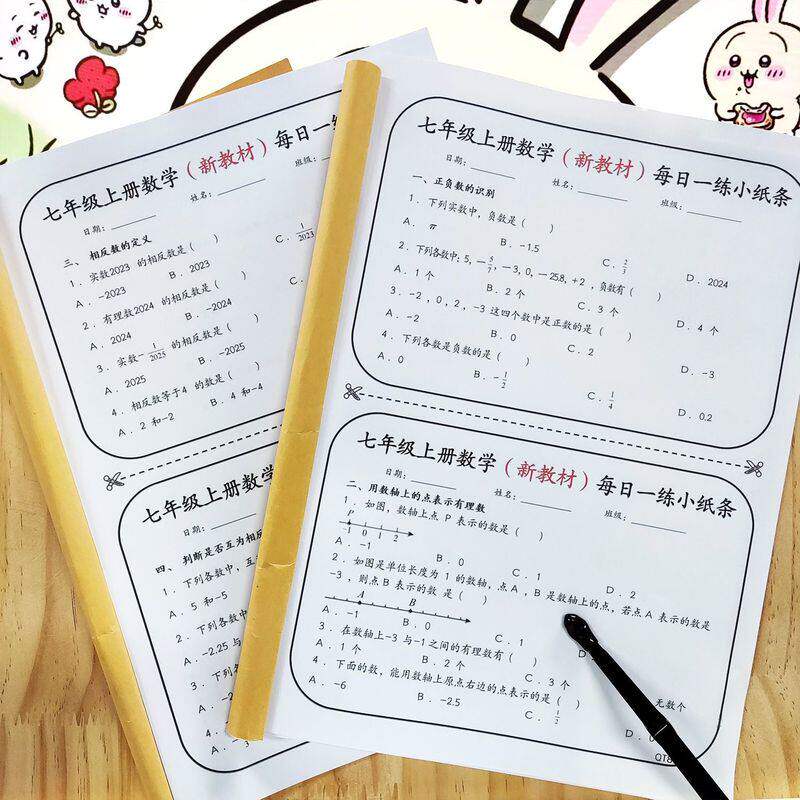 七年级上册数学（新教材）每日一
日期：________ 姓名：________ 班级：
三、相反数的定义
1．实数2023 的相反数是（ ）
A．-2023 B．2023 C．1/2023
2．有理数2024 的相反数是（ ）
A．2024 B．-2024 C．
3．实数-1/2025 的相反数是（ ）
A．2025 B．-2025
4．相反数等于4 的数是（ ）
A．2 和-2 B．4 和-4
七年级上册数学
日期：________
四、判断是否互为相反
1．下列各数中，互
A．5 和-5
2．下列各数中
A．-2.25 与
3．下列
A．
4．
A．
七年级上册数学（新教材）每日一练小纸条
日期：________ 姓名：________ 班级：________
一、正负数的识别
1．下列实数中，负数是（ ）
A．π B．-1.5 C．2/3 D．2024
2．下列各数中：5，-5/7，-3，0，-25.8，+2，负数有（ ）
A．1 个 B．2 个 C．3 个 D．4 个
3．-2，0，2，-3 这四个数中是正数的是（ ）
A．-2 B．0 C．2 D．-3
4．下列各数是负数的是（ ）
A．0 B．-1/2 C．1/4 D．0.2
七年级上册数学（新教材）每日一练小纸条
日期：________ 姓名：________ 班级：________
二、用数轴上的点表示有理数
1．如图，数轴上点 P 表示的数是（ ）
P
-1 0 1 2
A．-1 B．0 C．1 D．2
2．如图是单位长度为 1 的数轴，点 A，B 是数轴上的点，若点 A 表示的数是
-3，则点 B 表示的数 是（ ）
A B
A．-1 B．0 C．1 D
3．在数轴上-3 与-1 之间的有理数有（ ）
A．1 个 B．2 个 C．3 个 无数个
4．下面的数，能用数轴上原点右边的点表示的是（ ）
A．-6 B．-2.5 C．1/2 D．0